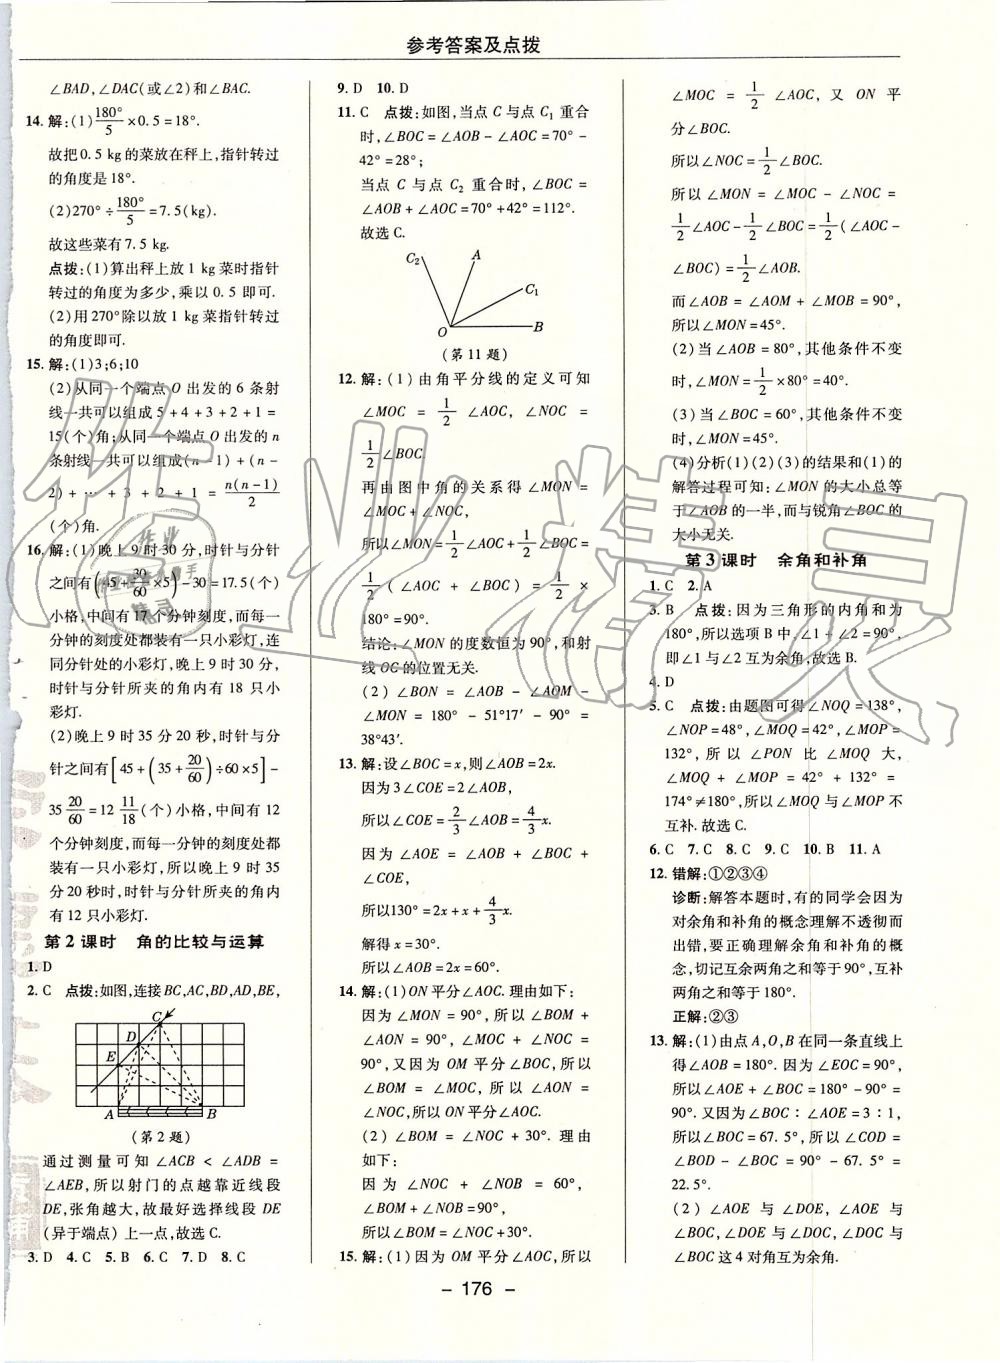 参考答案及点拨
∠BAD,∠DAC(或∠2)和∠BAC.
14. 解:(1)180°/5×0.5=18°.
故把0.5 kg的菜放在秤上,指针转过
的角度是18°.
(2)270°÷180°/5=7.5(kg).
故这些菜有7.5 kg.
点拨:(1)算出秤上放1 kg菜时指针
转过的角度为多少,乘以0.5即可.
(2)用270°除以放1 kg菜指针转过
的角度即可.
15. 解:(1)3;6;10
(2)从同一个端点O出发的6条射
线一共可以组成5+4+3+2+1=
15(个)角;从同一个端点O出发的n
条射线一共可以组成(n-1)+(n-
2)+…+3+2+1=n(n-1)/2
(个)角.
16. 解:(1)晚上9时30分,时针与分针
之间有(45+30/60×5)-30=17.5(个)
小格,中间有17个分钟刻度,而每一
分钟的刻度处都装有一只小彩灯,连
同分针处的小彩灯,故晚上9时30分,
时针与分针所夹的角内有18只小
彩灯.
(2)晚上9时35分20秒,时针与分
针之间有[45+(35+20/60)÷60×5]-
35 20/60=12 11/18(个)小格,中间有12
个分钟刻度,而每一分钟的刻度处都
装有一只小彩灯,所以晚上9时35
分20秒时,时针与分针所夹的角内
有12只小彩灯.
第2课时 角的比较与运算
1. D
2. C 点拨:如图,连接BC,AC,BD,AD,BE,
C
D
E
A
B
(第2题)
通过测量可知∠ACB<∠ADB=
∠AEB,所以射门的点越靠近线段
DE,张角越大,故最好选择线段DE
(异于端点)上一点,故选C.
3. D 4. C 5. B 6. C 7. D 8. C
9. D 10. D
11. C 点拨:如图,当点C与点C1重合
时,∠BOC=∠AOB-∠AOC=70°-
42°=28°;
当点C与点C2重合时,∠BOC=
∠AOB+∠AOC=70°+42°=112°.
故选C.
C2
A
C1
O
B
(第11题)
12. 解:(1)由角平分线的定义可知
∠MOC=1/2∠AOC,∠NOC=
1/2∠BOC.
再由图中角的关系得∠MON=
∠MOC+∠NOC,
所以∠MON=1/2∠AOC+1/2∠BOC=
1/2(∠AOC+∠BOC)=1/2×
180°=90°.
结论:∠MON的度数恒为90°,和射
线OC的位置无关.
(2)∠BON=∠AOB-∠AOM-
∠MON=180°-51°17′-90°=
38°43′.
13. 解:设∠BOC=x,则∠AOB=2x.
因为3∠COE=2∠AOB,
所以∠COE=2/3∠AOB=4/3x.
因为∠AOE=∠AOB+∠BOC+
∠COE,
所以130°=2x+x+4/3x.
解得x=30°.
所以∠AOB=2x=60°.
14. 解:(1)ON平分∠AOC.理由如下:
因为∠MON=90°,所以∠BOM+
∠AON=90°,∠MOC+∠NOC=
90°,又因为OM平分∠BOC,所以
∠BOM=∠MOC,所以∠AON=
∠NOC,所以ON平分∠AOC.
(2)∠BOM=∠NOC+30°.理由
如下:
因为∠NOC+∠NOB=60°,
∠BOM+∠NOB=90°,
所以∠BOM=∠NOC+30°.
15. 解:(1)因为OM平分∠AOC,所以
∠MOC=1/2∠AOC,又ON平
分∠BOC.
所以∠NOC=1/2∠BOC.
所以∠MON=∠MOC-∠NOC=
1/2∠AOC-1/2∠BOC=1/2(∠AOC-
∠BOC)=1/2∠AOB.
而∠AOB=∠AOM+∠MOB=90°,
所以∠MON=45°.
(2)当∠AOB=80°,其他条件不变
时,∠MON=1/2×80°=40°.
(3)当∠BOC=60°,其他条件不变
时,∠MON=45°.
(4)分析(1)(2)(3)的结果和(1)的
解答过程可知:∠MON的大小总等
于∠AOB的一半,而与锐角∠BOC的
大小无关.
第3课时 余角和补角
1. C 2. A
3. B 点拨:因为三角形的内角和为
180°,所以选项B中,∠1+∠2=90°,
即∠1与∠2互为余角,故选B.
4. D
5. C 点拨:由题图可得∠NOQ=138°,
∠NOP=48°,∠MOQ=42°,∠MOP=
132°,所以∠PON比∠MOQ大,
∠MOQ+∠MOP=42°+132°=
174°≠180°,所以∠MOQ与∠MOP不
互补.故选C.
6. C 7. C 8. C 9. C 10. B 11. A
12. 错解:①②③④
诊断:解答本题时,有的同学会因为
对余角和补角的概念理解不透彻而
出错,要正确理解余角和补角的概
念,切记互余两角之和等于90°,互补
两角之和等于180°.
正解:②③
13. 解:(1)由点A,O,B在同一条直线上
得∠AOB=180°.因为∠EOC=90°,
所以∠AOE+∠BOC=180°-90°=
90°.又因为∠BOC∶∠AOE=3∶1,
所以∠BOC=67.5°,所以∠COD=
∠BOD-∠BOC=90°-67.5°=
22.5°.
(2)∠AOE与∠DOE,∠AOE与
∠BOC,∠DOE与∠DOC,∠DOC与
∠BOC这4对角互为余角.
- 176 -
作业精灵